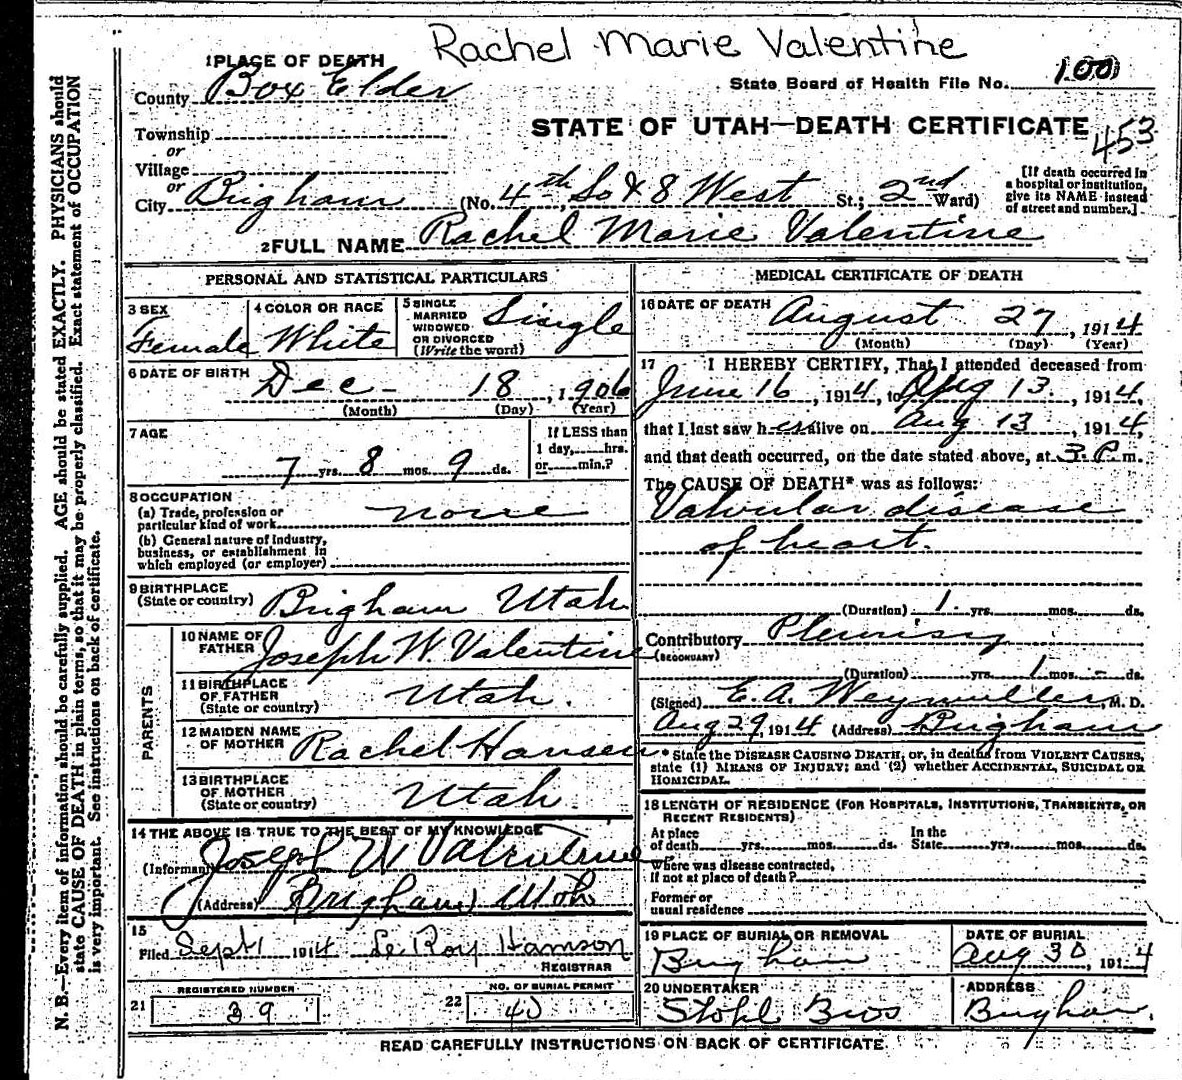 Rachel Marie Valentine
1 PLACE OF DEATH
County Box Elder
State Board of Health File No. 100
Township
or
STATE OF UTAH—DEATH CERTIFICATE
453
Village
or
City Brigham (No. 4th So & 8 West St.; 2nd Ward)
[If death occurred in
a hospital or institution,
give its NAME instead
of street and number.]
2 FULL NAME Rachel Marie Valentine
PERSONAL AND STATISTICAL PARTICULARS
3 SEX
Female
4 COLOR OR RACE
White
5 SINGLE
MARRIED
WIDOWED
OR DIVORCED
(Write the word)
Single
6 DATE OF BIRTH
Dec - 18, 1906
(Month) (Day) (Year)
7 AGE
7 yrs. 8 mos. 9 ds.
If LESS than
1 day, hrs.
or min.?
8 OCCUPATION
(a) Trade, profession or
particular kind of work none
(b) General nature of Industry,
business, or establishment in
which employed (or employer)
9 BIRTHPLACE
(State or country) Brigham Utah
PARENTS
10 NAME OF
FATHER Joseph W. Valentine
11 BIRTHPLACE
OF FATHER
(State or country) Utah.
12 MAIDEN NAME
OF MOTHER Rachel Hansen
13 BIRTHPLACE
OF MOTHER
(State or country) Utah
14 THE ABOVE IS TRUE TO THE BEST OF MY KNOWLEDGE
(Informant) Joseph W Valentine
(Address) Brigham Utah
15
Filed Sept 1 1914 Le Roy Hamson
REGISTRAR
REGISTERED NUMBER
21 39
NO. OF BURIAL PERMIT
22 40
MEDICAL CERTIFICATE OF DEATH
16 DATE OF DEATH August 27, 1914
(Month) (Day) (Year)
17 I HEREBY CERTIFY, That I attended deceased from
June 16, 1914, to Aug 13, 1914,
that I last saw her alive on Aug 13, 1914,
and that death occurred, on the date stated above, at 3 P m.
The CAUSE OF DEATH* was as follows:
Valvular disease
of heart.
(Duration) 1 yrs. mos. ds.
Contributory Pleurisy
(SECONDARY)
(Duration) yrs. 1 mos. - ds.
(Signed) E. A. Weymuller, M. D.
Aug 29, 1914 (Address) Brigham
* State the DISEASE CAUSING DEATH, or, in deaths from VIOLENT CAUSES,
state (1) MEANS OF INJURY; and (2) whether ACCIDENTAL, SUICIDAL OR
HOMICIDAL.
18 LENGTH OF RESIDENCE (FOR HOSPITALS, INSTITUTIONS, TRANSIENTS, OR
RECENT RESIDENTS)
At place
of death yrs. mos. ds.
In the
State yrs. mos. ds.
Where was disease contracted,
if not at place of death?
Former or
usual residence
19 PLACE OF BURIAL OR REMOVAL
Brigham
DATE OF BURIAL
Aug 30, 1914
20 UNDERTAKER
Stohl Bros
ADDRESS
Brigham.
READ CAREFULLY INSTRUCTIONS ON BACK OF CERTIFICATE
N. B.—Every item of information should be carefully supplied. AGE should be stated EXACTLY. PHYSICIANS should
state CAUSE OF DEATH in plain terms, so that it may be properly classified. Exact statement of OCCUPATION
is very important. See instructions on back of certificate.